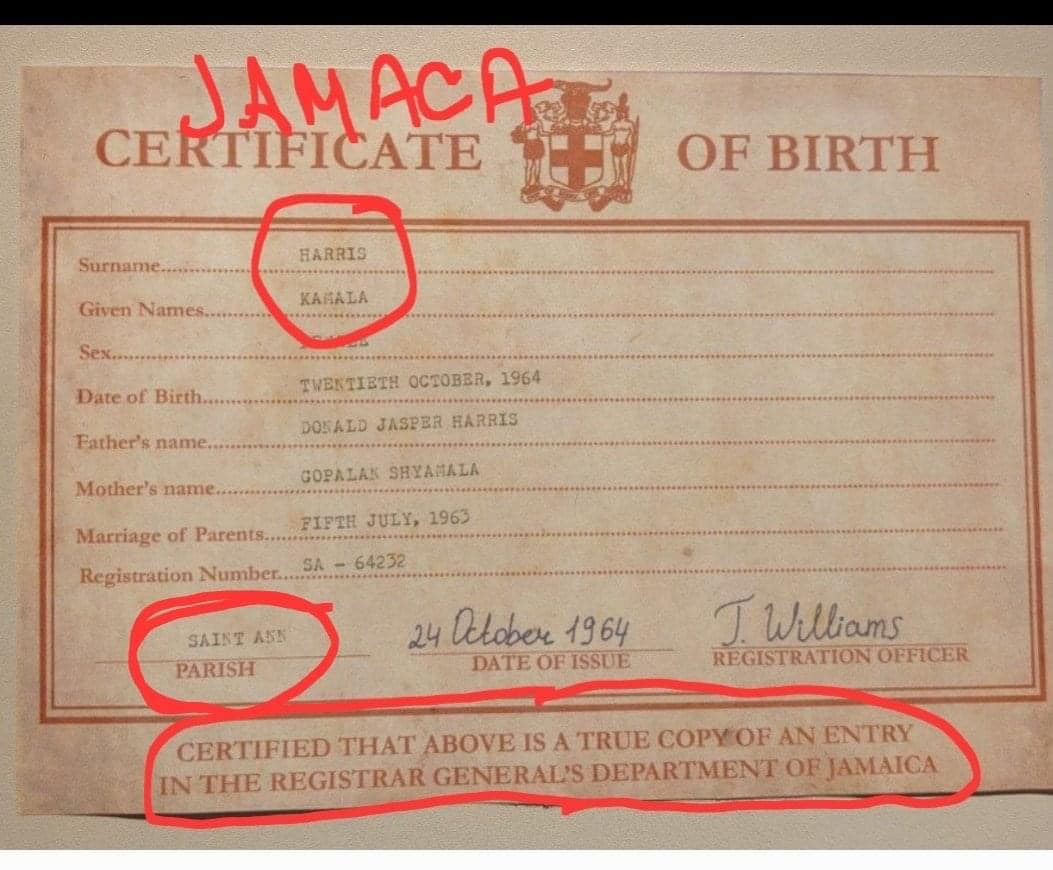 JAMACA
CERTIFICATE OF BIRTH
Surname HARRIS
Given Names KAMALA
Sex
Date of Birth TWENTIETH OCTOBER, 1964
Father's name DONALD JASPER HARRIS
Mother's name GOPALAN SHYAMALA
Marriage of Parents FIFTH JULY, 1963
Registration Number SA - 64232
SAINT ANN 24 October 1964 J. Williams
PARISH DATE OF ISSUE REGISTRATION OFFICER
CERTIFIED THAT ABOVE IS A TRUE COPY OF AN ENTRY
IN THE REGISTRAR GENERAL'S DEPARTMENT OF JAMAICA